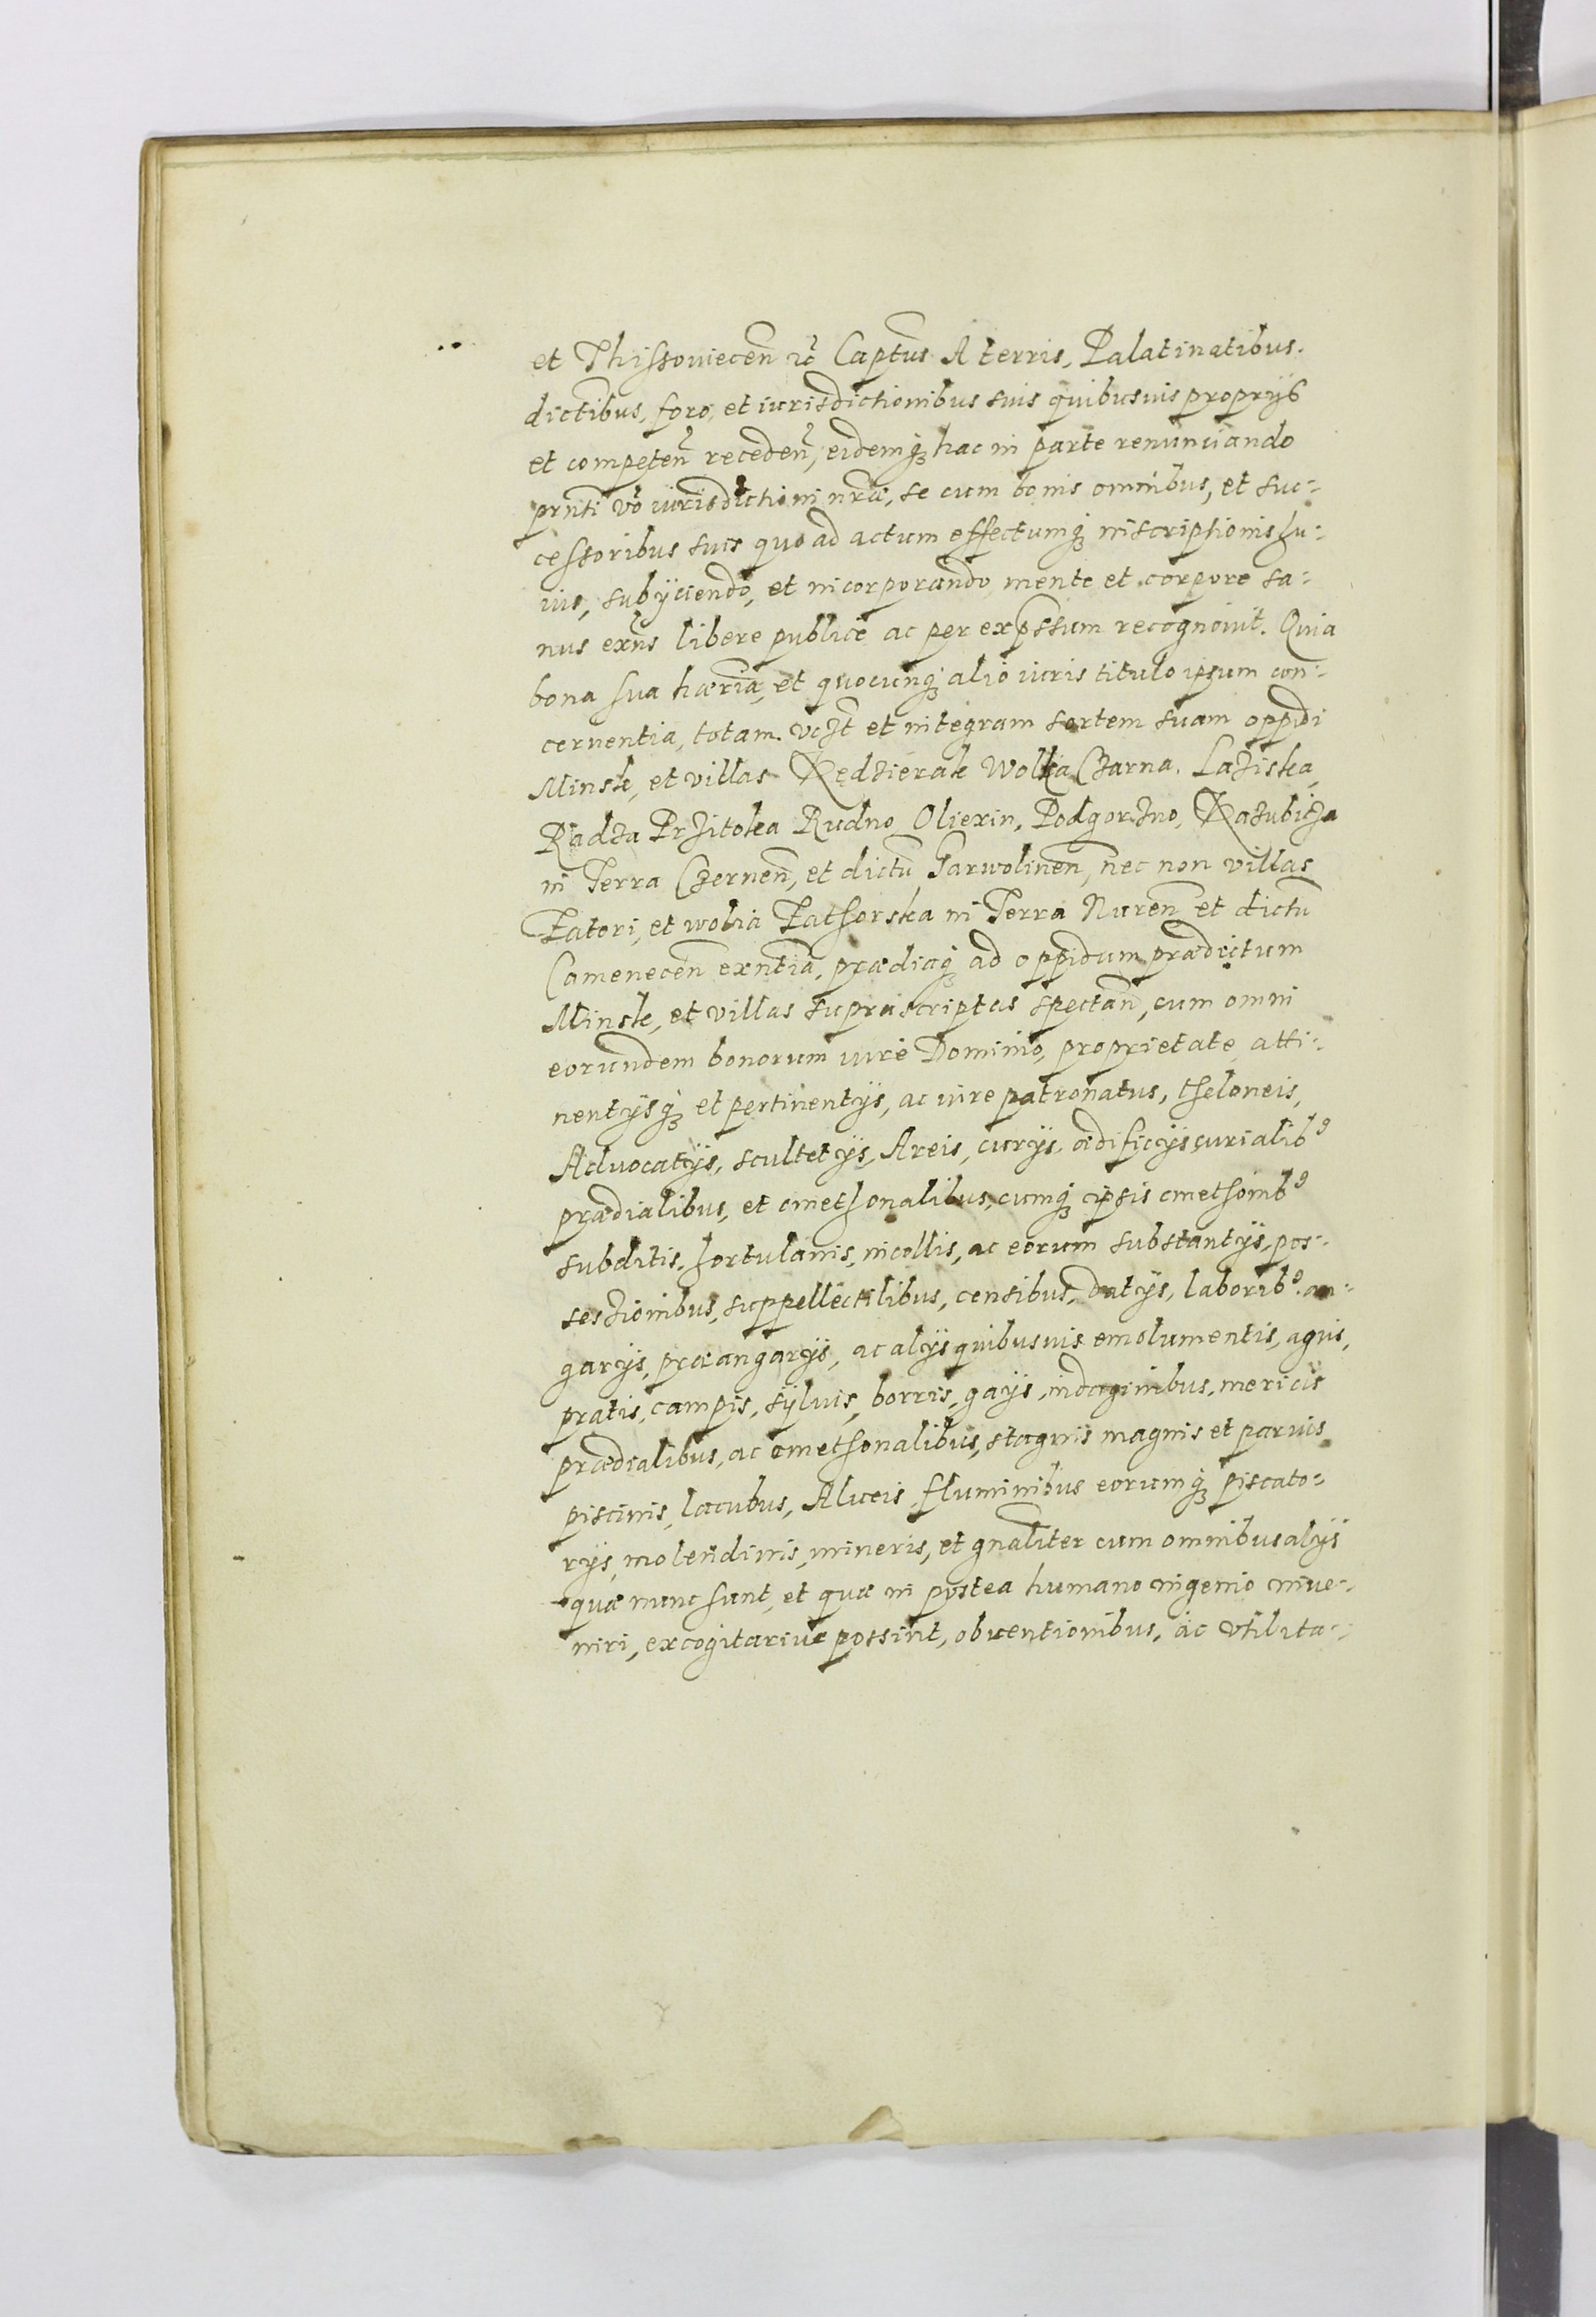 et Thissouiecen̄ zc̄ Captūs A terris, Palatinatibus.
dictibus, foro, et iurisdictionibus suis quibusuis proprijs
et competen̄ receden̄, eidemq; hac in parte renunciando
prn̄ti vō iurisdictioni nr̄æ, se cum bonis omnibus, et suc-
cessoribus suis quo ad actum effectumq; inscriptionis hu-
ius, subijciendo, et incorporando, mente et corpore sa-
nus exn̄s libere publice ac per exp̄ssum recognouit. Quia
bona sua hæria, et quocunq; alio iuris titulo ipsum con-
cernentia, totam. vczt et integram sortem suam oppidi
Minsk, et villas Kędzierak Wolka Czarna. Laziska,
Radza Przitoka Rudno Oliexin, Podgorzno, Kazubicza
in Terra Czernen̄, et dictū Garwolinen̄, nec non villas
Zatori, et wolia Zathorska in Terra Nuren̄ et dictū
Camenecen̄ exn̄tia, prædiaq; ad oppidum prædictum
Minsk, et villas suprascriptas spectan̄, cum omni
eorundem bonorum iure Dominio, proprietate, atti-
nentijsq; et pertinentijs, ac iure patronatus, theloneis,
Aduocatijs, scultetijs, Areis, curijs, ædificijs curialib9
prædialibus, et cmethonalibus, cumq; ipsis cmethonib9
subditis, hortulanis, incollis, ac eorum substantijs, pos-
sessionibus, suppellectilibus, censibus, datijs, laborib9. an-
garijs, præangarijs, ac alijs quibusuis emolumentis, agris,
pratis, campis, sÿluis, borris, gays, indaginibus, mericis
prædialibus, ac cmethonalibus, stagnis magnis et paruis
piscinis, lacubus, Alueis, fluminibus eorumq; piscato-
rijs, molendinis, mineris, et gn̄aliter cum omnibus alijs
quæ nunc sunt, et quæ in postea humano ingenio inue-
niri, excogitariue possint, obuentionibus, ac vtilita-